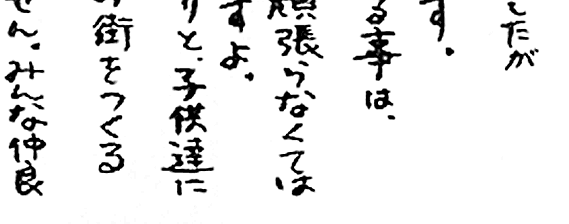 したが
す。
る事は、
頑張らなくては
すよ。
りと、子供達に
街をつくる
せん。みんな仲良